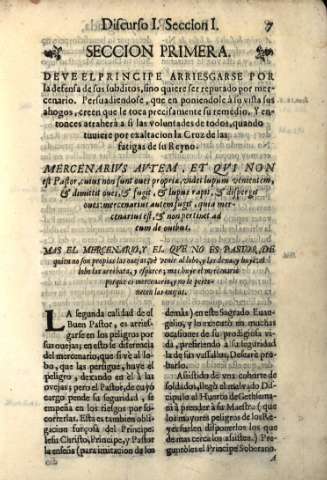 Discurso I. Seccion I. 7
SECCION PRIMERA.
DEVE EL PRINCIPE ARRIESGARSE POR
la defensa de sus subditos, sino quiere ser reputado por mer-
cenario. Persuadiendose, que en poniendole à su vista sus
ahogos, creen que le toca precisamente su remedio. Y en-
tonces atraherà a si las voluntades de todos, quando
tuviere por exaltacion la Cruz de las
fatigas de su Reyno.
MERCENARIUS AVTEM, ET QVI NON
est Pastor, cuius non sunt oues propriæ, videt lupum venientem,
& dimittit oues, & fugit, & lupus rapit, & dispergit
oues: mercenarius autem fugit, quia mer-
cenarius est, & non pertinet ad
eum de ouibus.
MAS EL MERCENARIO, Y EL QVE NO ES PASTOR, DE
quien no son propias las ouejas, vè venir al lobo, y las dexa, y huye, el
lobo las arrebata, y esparce; mas huye el mercenario
porque es mercenario, y no le perte-
necen las ouejas.
LA segunda calidad de el
Buen Pastor, es arries-
garse en los peligros por
sus ouejas; en esto se diferencia
del mercenario, que si vè al lo-
bo, que las persigue, huye el
peligro, dexando en èl à las
ovejas; pero el Pastor, de cuyo
cargo pende su seguridad, se
empeña en los riesgos por so-
correrlas. Esta es tambien obli-
gacion forçosa del Principe.
Iesu Christo, Principe, y Pastor
la enseña (para imitacion de los
demàs) en este Sagrado Euan-
gelio, y lo executò en muchas
ocasiones de su prodigiosa vi-
da, prefiriendo a su seguridad
la de sus vassallos. Descarè pro-
barlo.
Assistido de una cohorte de
soldados, llegò el malvado Dis-
cipulo al Huerto de Gethsema-
ni à prender à su Maestro (que
los mayores peligros de los Re-
yes suelen disponerlos los que
de mas cerca los assisten.) Pre-
guntòles el Principe Soberano.
A